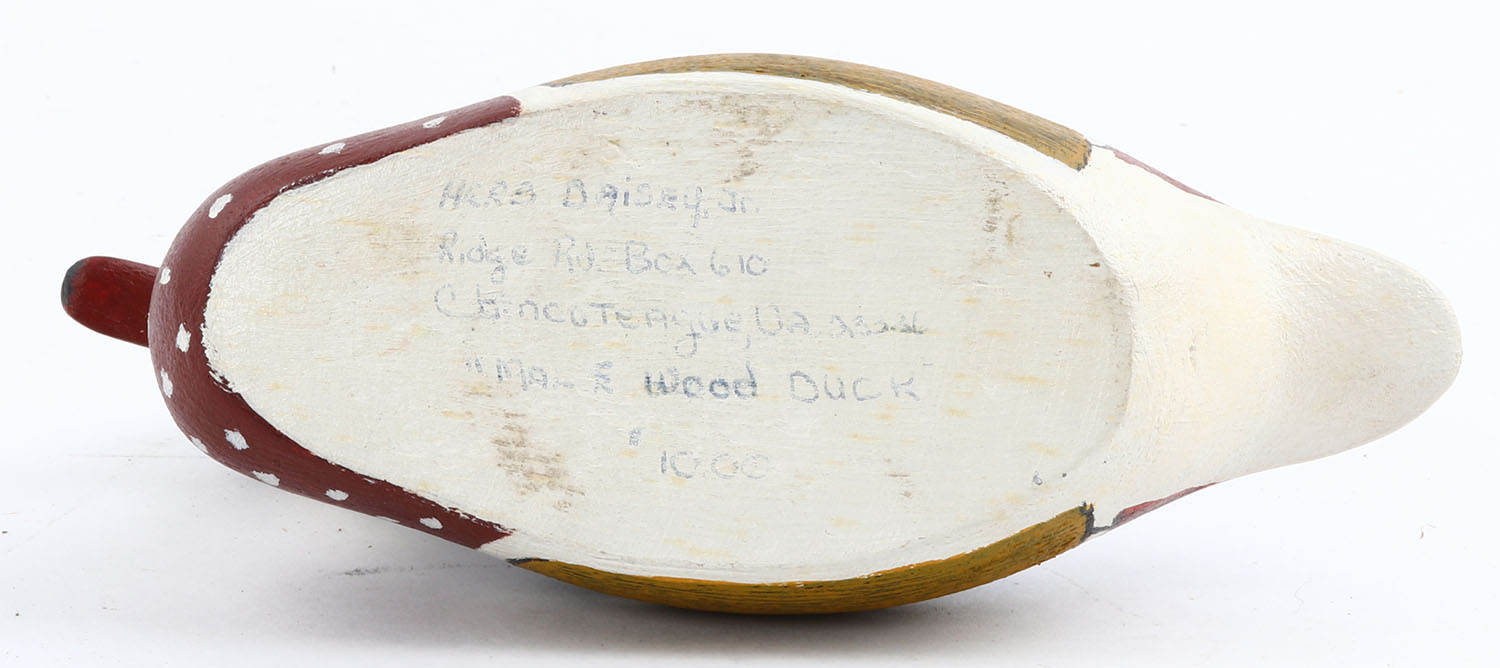 Herb Daisey, Jr.
Ridge Rd. Box 610
Chincoteague, Va
"Male Wood Duck
10.00